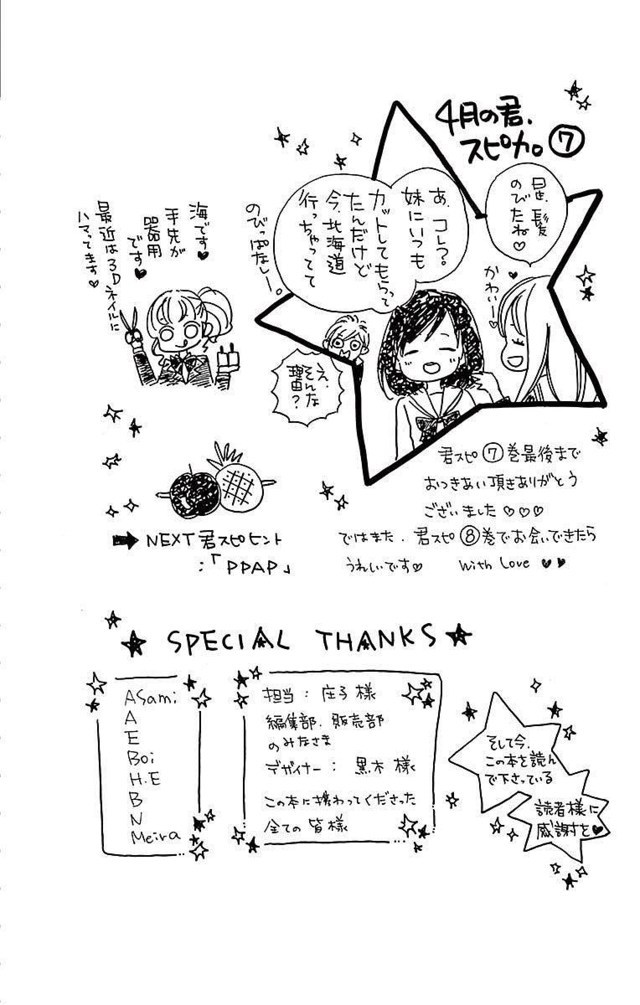 4月の君、
スピカ。⑦
星、髪
のびたね♡
かわいー♡
あ、コレ?
妹にいつも
カットしてもらって
たんだけど
今、北海道
行っちゃってて
のびっぱなしー。
え、
そんな
理由?
海です♥
手先が
器用
です♥
最近は3Dネイルに
ハマってます♥
君スピ⑦巻最後まで
おつきあい頂きありがとう
ございました♡♡♡
ではまた、君スピ⑧巻でお会いできたら
うれしいです♡ With Love ♥♥
➡ NEXT君スピヒント
:「PPAP」
★ SPECIAL THANKS ★
Asami
A
E
Boi
H.E
B
N
Meira
担当:庄子様
編集部、販売部
のみなさま
デザイナー:黒木様
この本に携わってくださった
全ての皆様
そして今、
この本を読ん
で下さっている
読者様に
感謝を♥